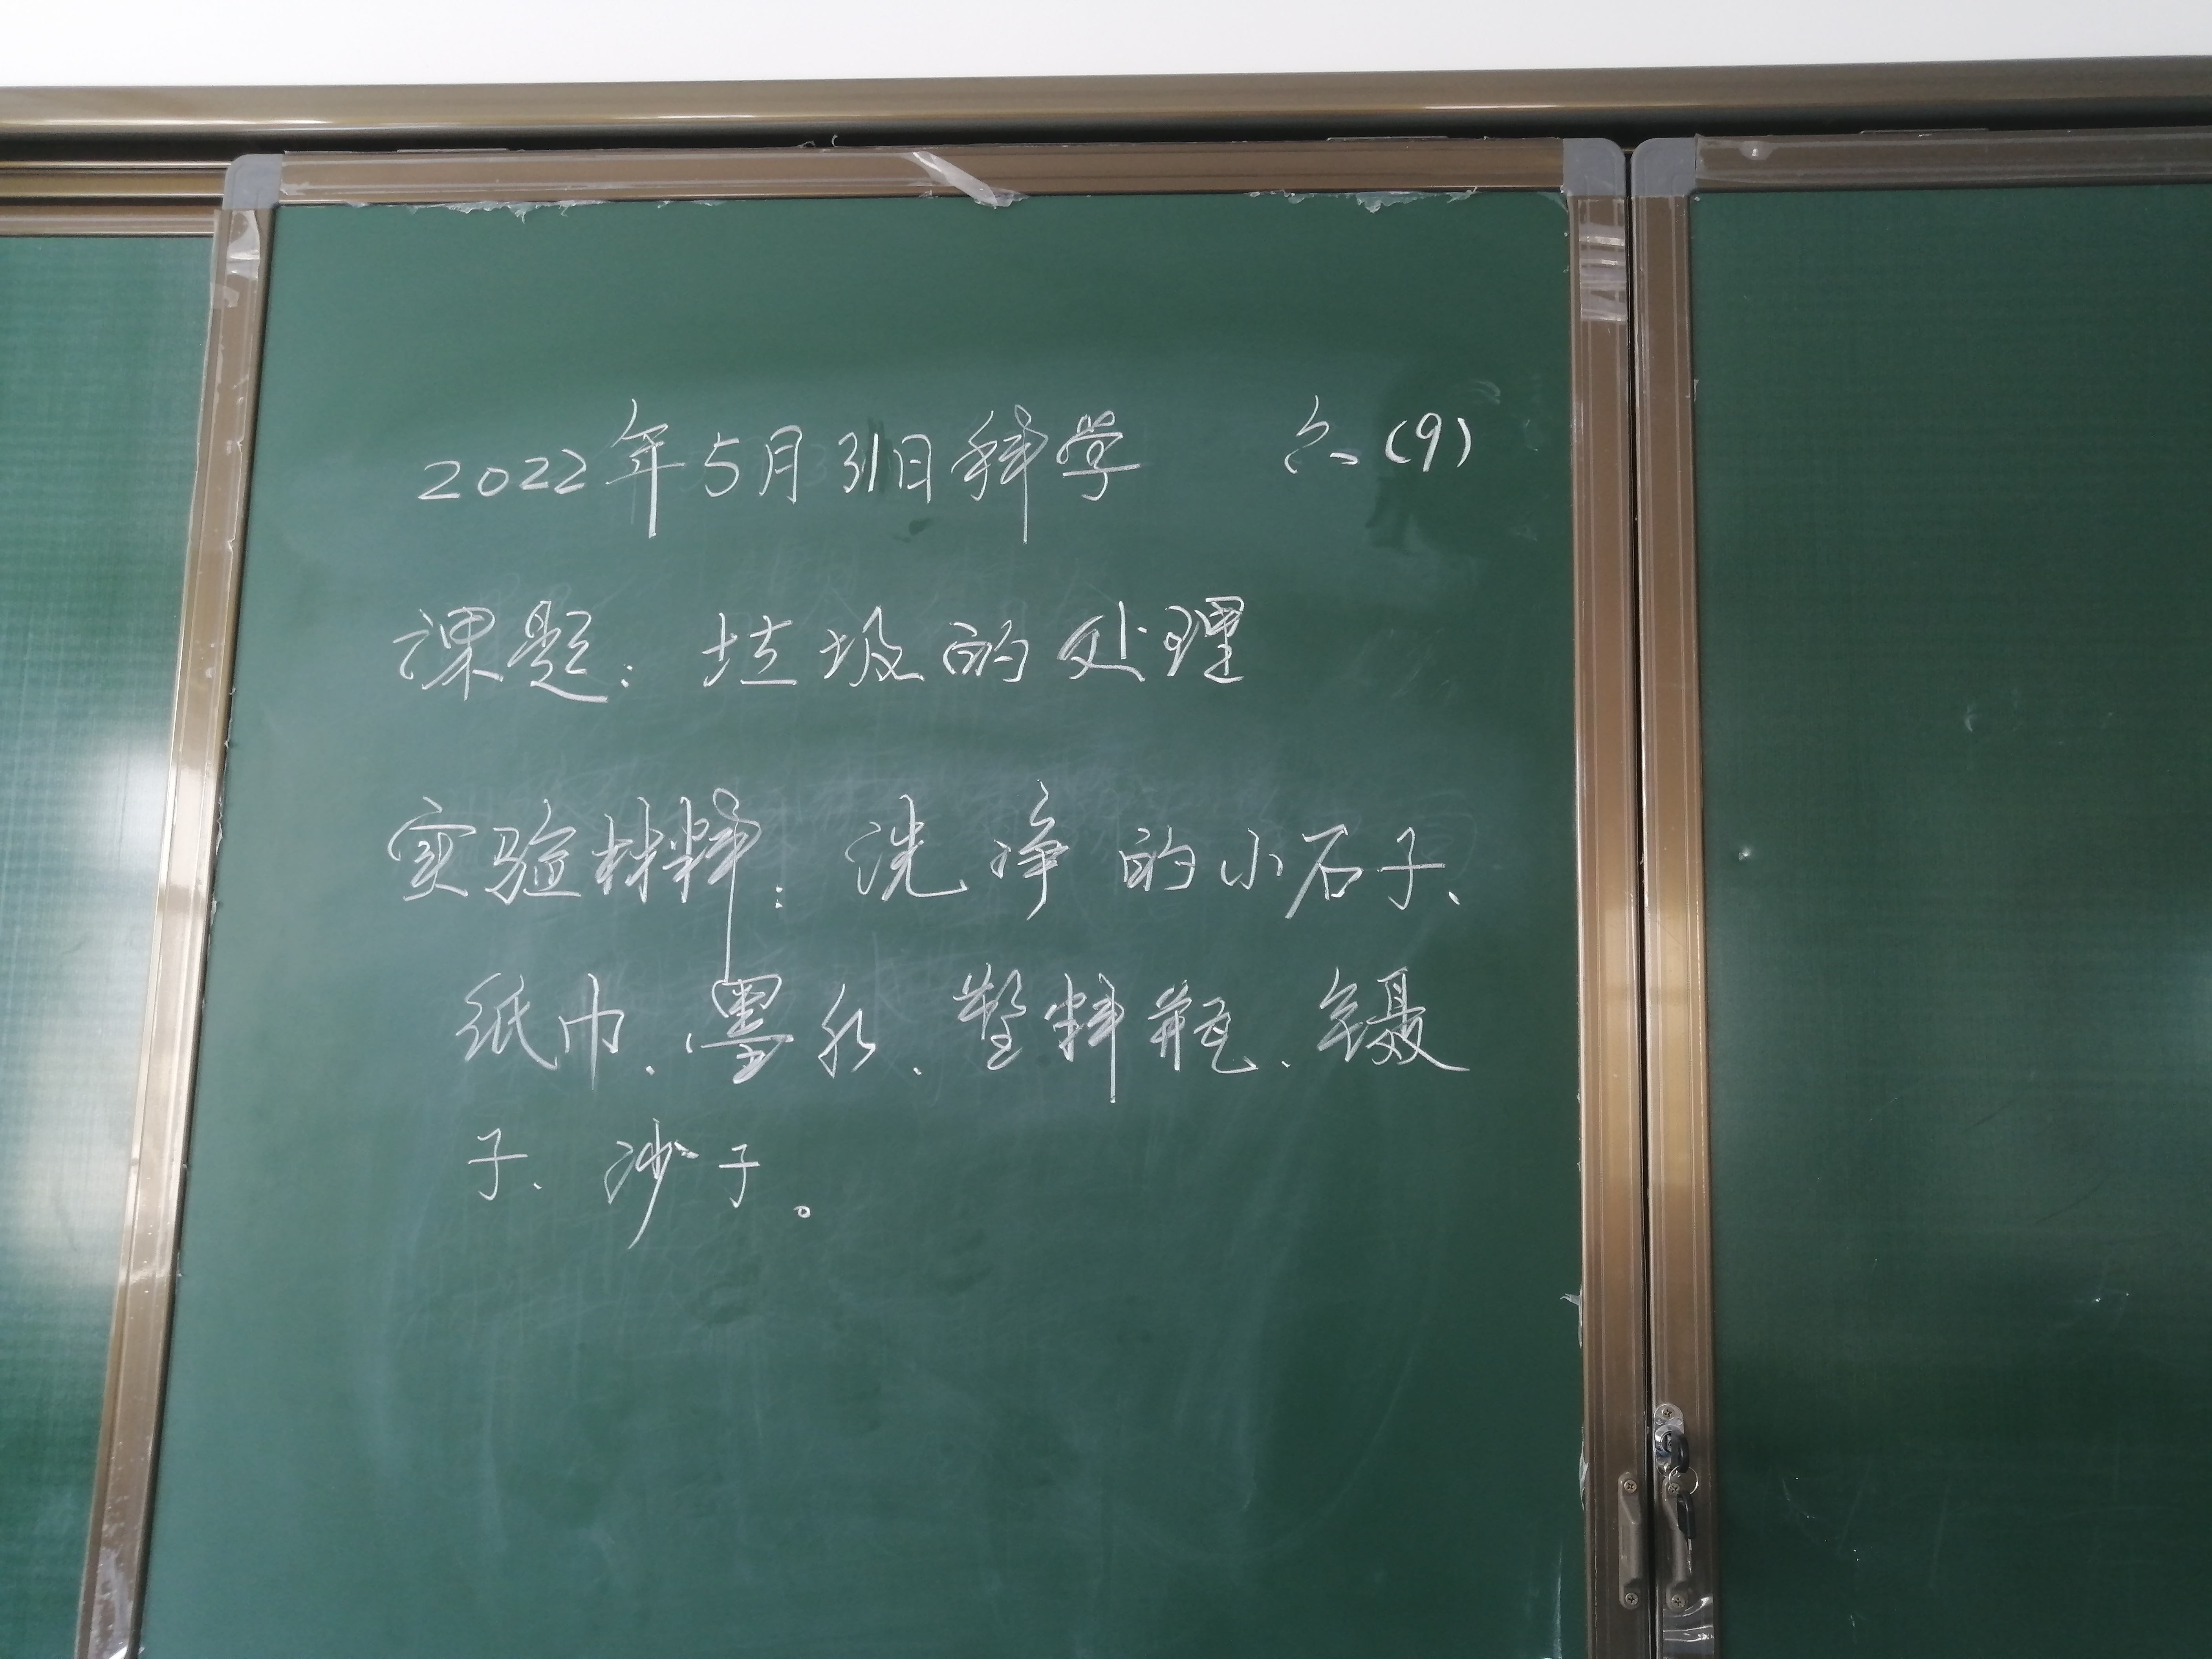 2022年5月31日科学 六(9)
课题：垃圾的处理
实验材料：洗净的小石子、
纸巾、墨水、塑料瓶、镊
子、沙子。